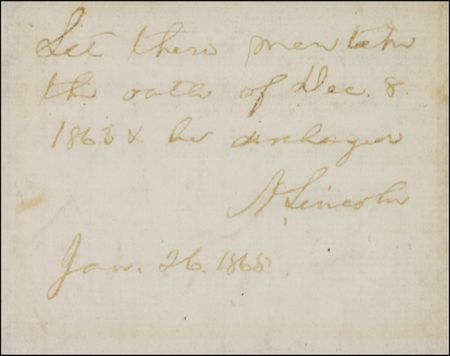 Let these men take
the oath of Dec. 8.
1863 & be discharged
A. Lincoln
Jan. 26. 1865